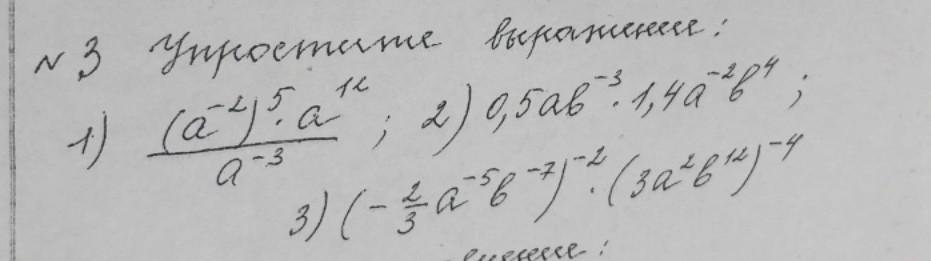 №3 Упростите выражение:
1) \frac{(a^{-2})^5 \cdot a^{12}}{a^{-3}} ; 2) 0,5ab^{-3} \cdot 1,4a^{-2}b^4 ;
3) (-\frac{2}{3}a^{-5}b^{-7})^{-2} \cdot (3a^2b^{12})^{-4}